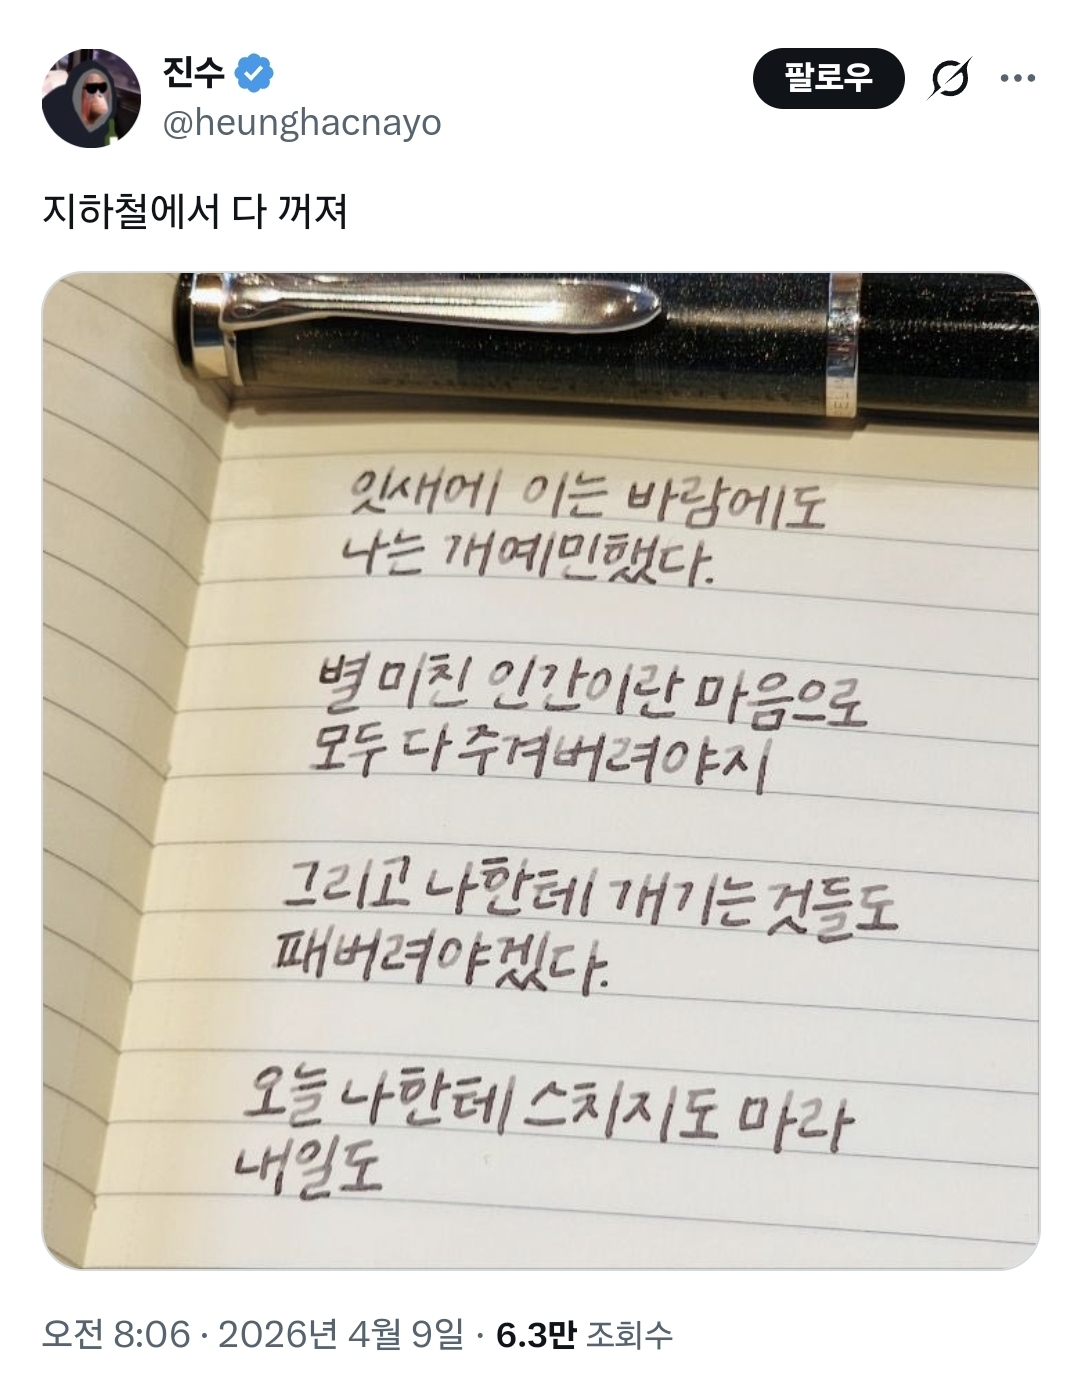 진수
팔로우
@heunghacnayo
지하철에서 다 꺼져
잇새에 이는 바람에도
나는 개예민했다.
별 미친 인간이란 마음으로
모두 다 주겨버려야지
그리고 나한테 개기는 것들도
패버려야겠다.
오늘 나한테 스치지도 마라
내일도
오전 8:06 · 2026년 4월 9일 · 6.3만 조회수